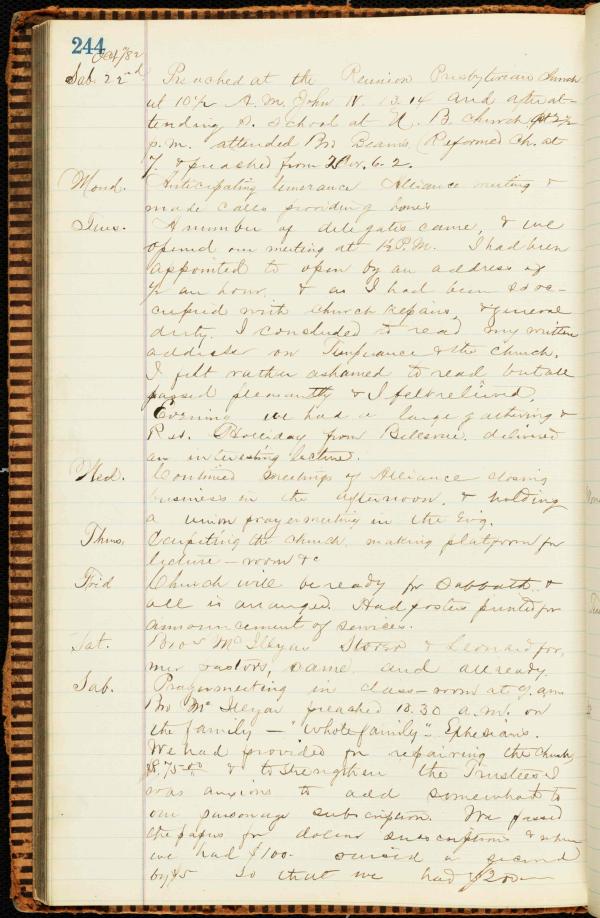 244
Oct / 82
Sab. 22nd Preached at the Reunion Presbyterian Church
at 10½ A.M. John N. 13.14 and after at-
tending S. School at U. B. Church at 2½
p.m. attended Bro Beams (Reformed Ch. at
7. & preached from 2 Cor. 6. 2.
Mond. Anticipating temperance Alliance meeting &
made calls providing homes
Tues. A number of delegates came, & we
opened our meeting at 1½ P.M. I had been
appointed to open by an address of
½ an hour, & as I had been so oc-
cupied with church repairs, & general
duty, I concluded to read my written
address on Temperance & the church.
I felt rather ashamed to read but all
passed pleasantly & I felt relieved.
Evening we had a large gathering &
Rev. Holliday from Bellevue delivered
an interesting lecture.
Wed. Continued meetings of Alliance closing
business in the afternoon, & holding
a union prayermeeting in the Evg.
Thurs. Carpeting the church, making platform for
lecture-room &c
Frid Church will be ready for Sabbath &
all is arranged. Had posters printed for
announcement of services.
Sat. Bros Mc Ilyar Storer & Leonard for,
mer pastors, came and all ready.
Sab. Prayermeeting in class-room at 9. a.m.
Bro Mc Ilyar preached 10.30 a.m. on
the family - "Whole family". Ephesians.
We had provided for repairing the Church
$8.75.00 & to strengthen the Trustees I
was anxious to add somewhat to
our parsonage subscription. We passed
the papers for dollar subscriptions & when
we had $100- raised a second
by $5 so that we had $200—